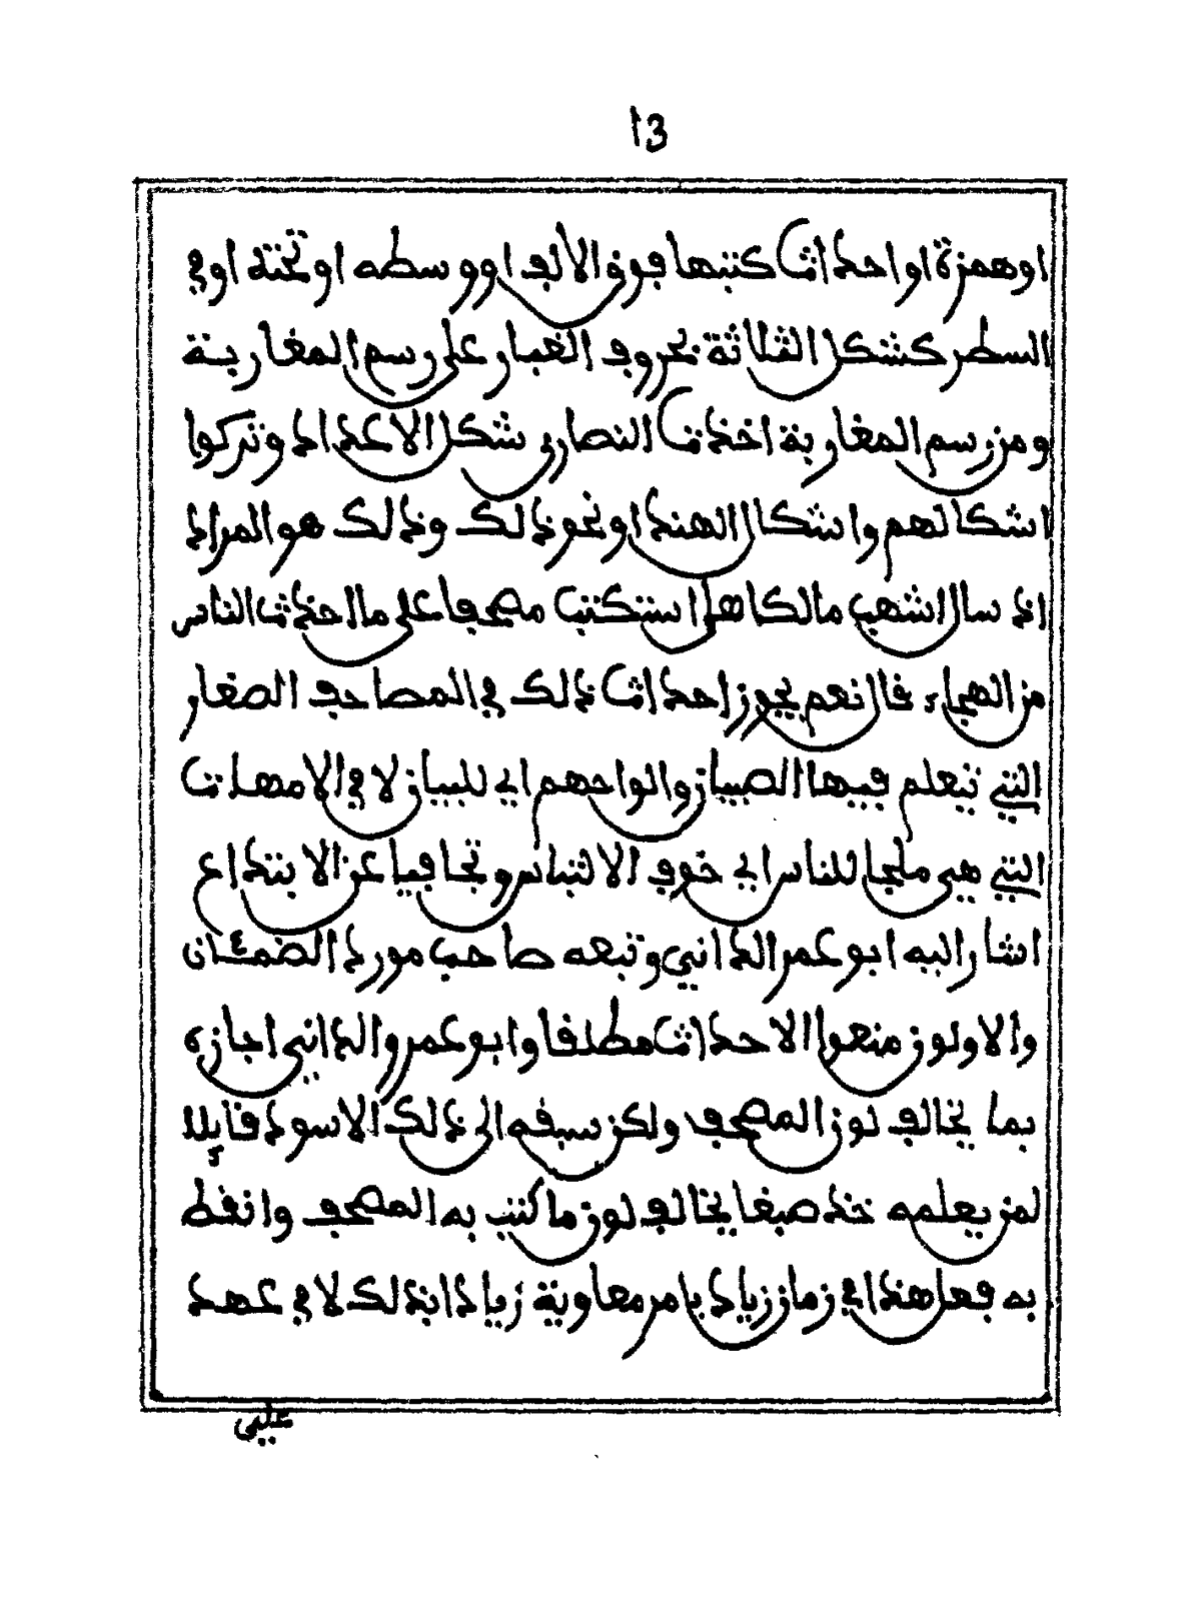 13
او همزة او احداث كتبها فوق الألف او وسطه او تحته او في
السطر كشكل الثلاثة بحروف الغبار على رسم المغاربة
ومن رسم المغاربة اخذت النصارى شكل الاعداد وتركوا
اشكالهم واشكال الهند او نحو ذلك وذلك هو المراد
اذ سال اشهب مالكا هل استكتب مصحفا على ما احدث الناس
من الهجاء قال نعم يجوز احداث ذلك في المصاحف الصغار
التي تتعلم فيها الصبيان والواحهم اي للبيان لا في الامهات
التي هي ملجا للناس اي خوف الالتباس وتجافيا عن الابتداع
اشار اليه ابو عمر الداني وتبعه صاحب مورد الضمئان
والاولون منعوا الاحداث مطلقا وابو عمرو الداني اجازه
بما يخالف لون المصحف ولكن سبقه الى ذلك الاسود قايلا
لمن يعلمه خذ صبغا يخالف لون ما كتب به المصحف وانقط
به فعل هذا في زمان زياد بامر معاوية زيادا بذلك لا في عهد
علي